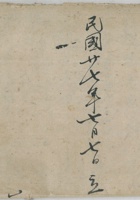 民國廿七年七月七日立